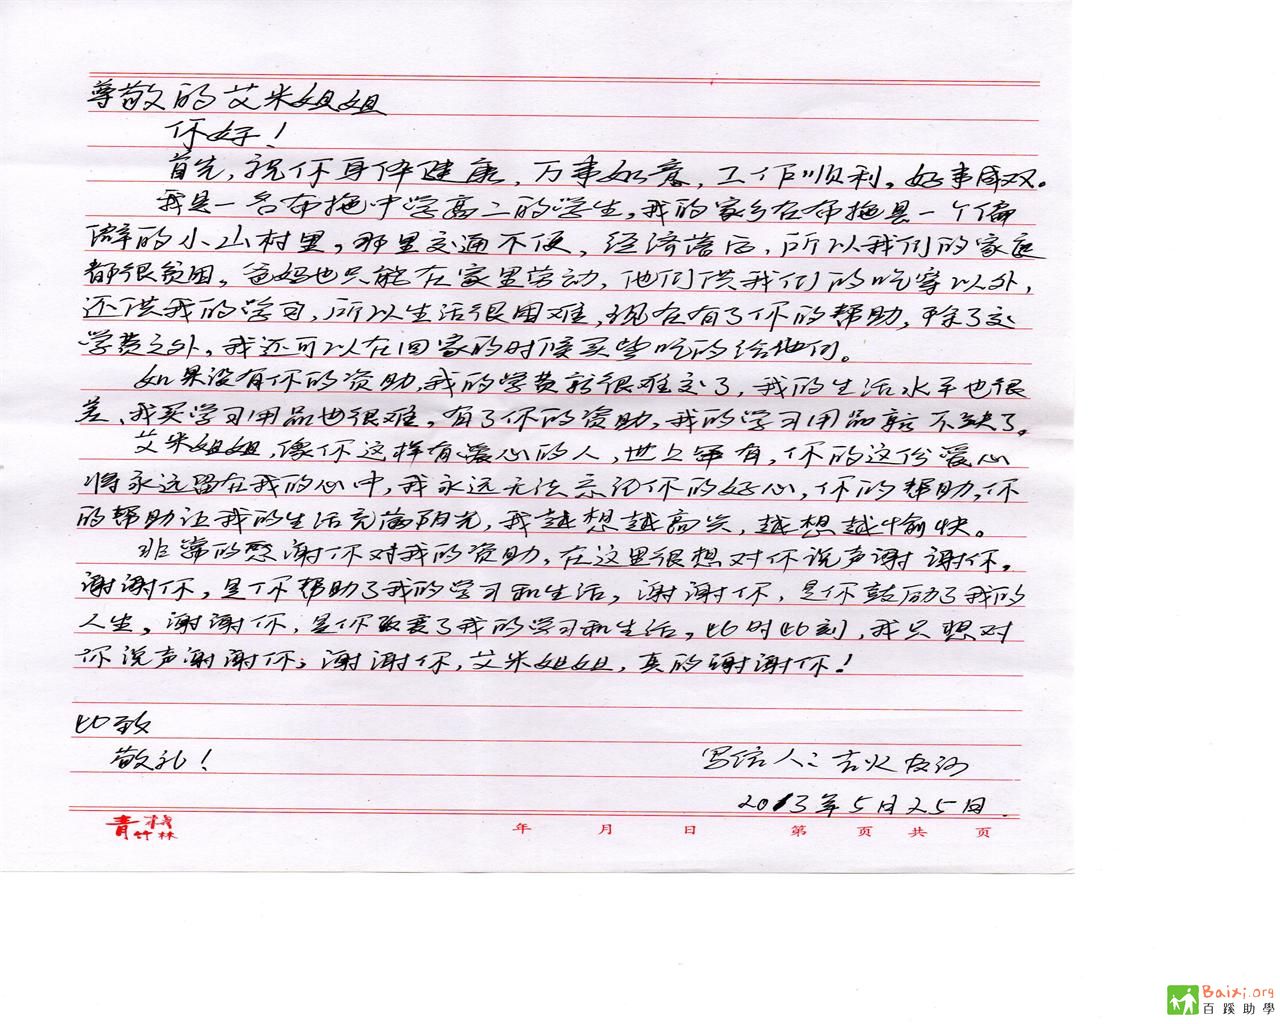 尊敬的艾米姐姐
你好!
首先,祝你身体健康,万事如意,工作顺利。好事成双。
我是一名布拖中学高二的学生,我的家乡在布拖县一个偏
僻的小山村里,那里交通不便,经济落后,所以我们的家庭
都很贫困。爸妈也只能在家里劳动,他们供我们的吃穿以外,
还供我的学习,所以生活很困难,现在有了你的帮助,除了交
学费之外,我还可以在回家的时候买些吃的给他们。
如果没有你的资助,我的学费就很难交了,我的生活水平也很
差、我买学习用品也很难,有了你的资助,我的学习用品就不缺了。
艾米姐姐,像你这样有爱心的人,世上罕有,你的这份爱心
将永远留在我的心中,我永远无法忘记你的好心,你的帮助,你
的帮助让我的生活充满阳光,我越想越高兴,越想越愉快。
非常的感谢你对我的资助,在这里很想对你说声谢谢你。
谢谢你,是你帮助了我的学习和生活,谢谢你,是你鼓励了我的
人生,谢谢你,是你改变了我的学习和生活,此时此刻,我只想对
你说声谢谢你,谢谢你,艾米姐姐,真的谢谢你!
此致
敬礼!
写信人:吉火
2013年5月25日.
青竹林
年 月 日 第 页 共 页
Baixi.org
百蹊助學